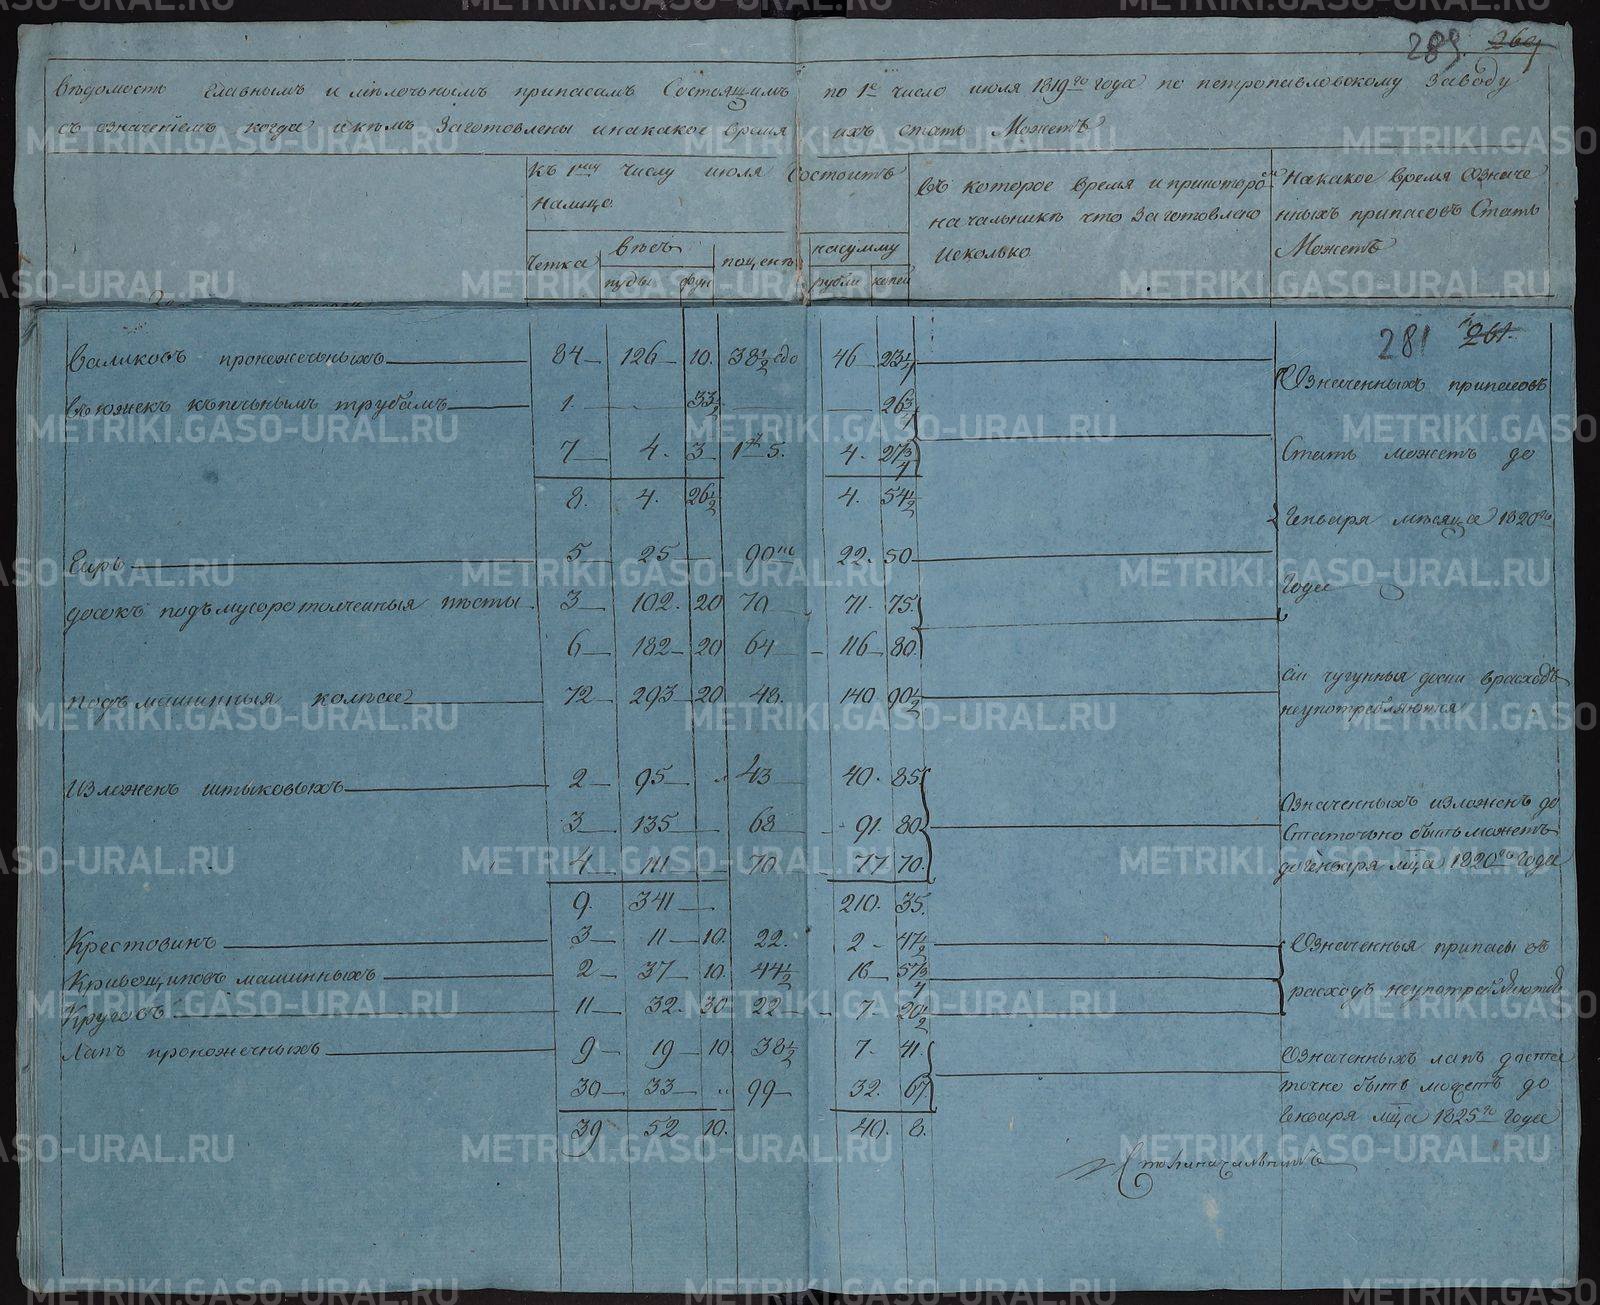 289. 269
Вѣдомость Главнымъ и мѣлочнымъ припасамъ Состоящимъ по 1е число июля 1819го года по петропавловскому заводу
съ означенiемъ когда и кѣмъ Заготовлены и накакое время ихъ стать Можетъ
Къ 1му числу июля Состоитъ
Налицо.
Въ которое время и при которо
начальникѣ что Заготовлено
и сколько
На какое время Означе
нныхъ припасовъ Стать
Можетъ
Четка
вѣсъ
пуды фун
по цѣнѣ
на сумму
рубли копей
281 261.
Валиковъ проножечныхъ 84 126 10. 38 1/2 46 23 1/4
Означенныхъ припасовъ
Вьюжекъ къ печнымъ трубамъ 1. 33 1/2 26 3/4
7 4. 3 1 5. 4. 27 3/4
Стать можетъ до
8. 4. 26 1/2 4. 54 1/2
Генваря мѣсяца 1820го
Гирь 5 25 90 22. 50
Года
досокъ подъ мусоротолченыя пѣсты 3 102. 20 70 71. 75.
6 182 20 64 116 80.
подъ машинныя колѣса 72 293 20 48. 140 90 1/2
сiи чугунныя доски врасходъ
неупотребляются
Изложекъ штыковыхъ 2 95 43 40. 85
3 135 68 91. 80
4 111 70 77 70.
9. 341 210. 35.
Означенныхъ изложекъ до
статочно быть можетъ
до Генваря мца 1820го года
Крестовинъ 3 11 10. 22. 2 47 1/2
Кривошиповъ машинныхъ 2 37 10. 44 1/2 16 57 3/4
Круговъ 11 32. 30 22 7. 20 1/2
Означенныя припасы въ
расходъ неупотребляются
Лапъ проножечныхъ 9 19 10. 38 1/2 7. 41.
30 33 99 32. 67
39 52 10. 40. 8.
Означенныхъ лапъ доста
точно быть можетъ до
Генваря мца 1825го года
METRIKI.GASO-URAL.RU